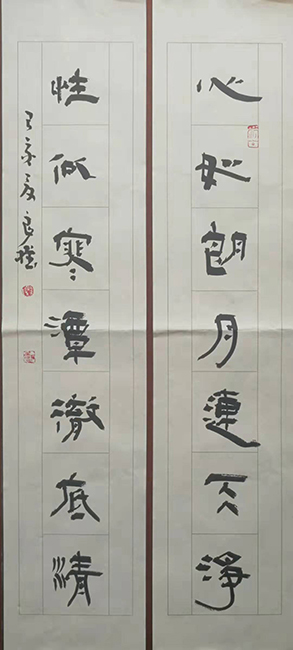 心如朗月連天淨
性似寒潭徹底清
己亥夏良